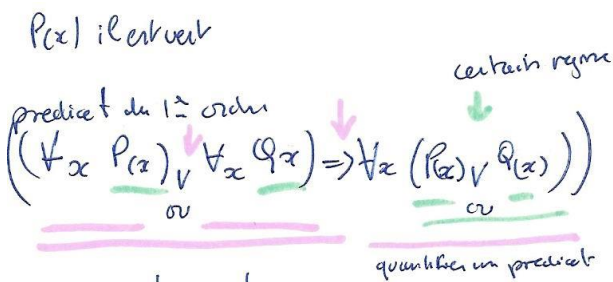 P(x) il est vert
certain
prédicat du 1er ordre
((∀x P(x) ∨ ∀x Qx) => ∀x (P(x) ∨ Q(x)))
ou ou
quantifier un prédicat